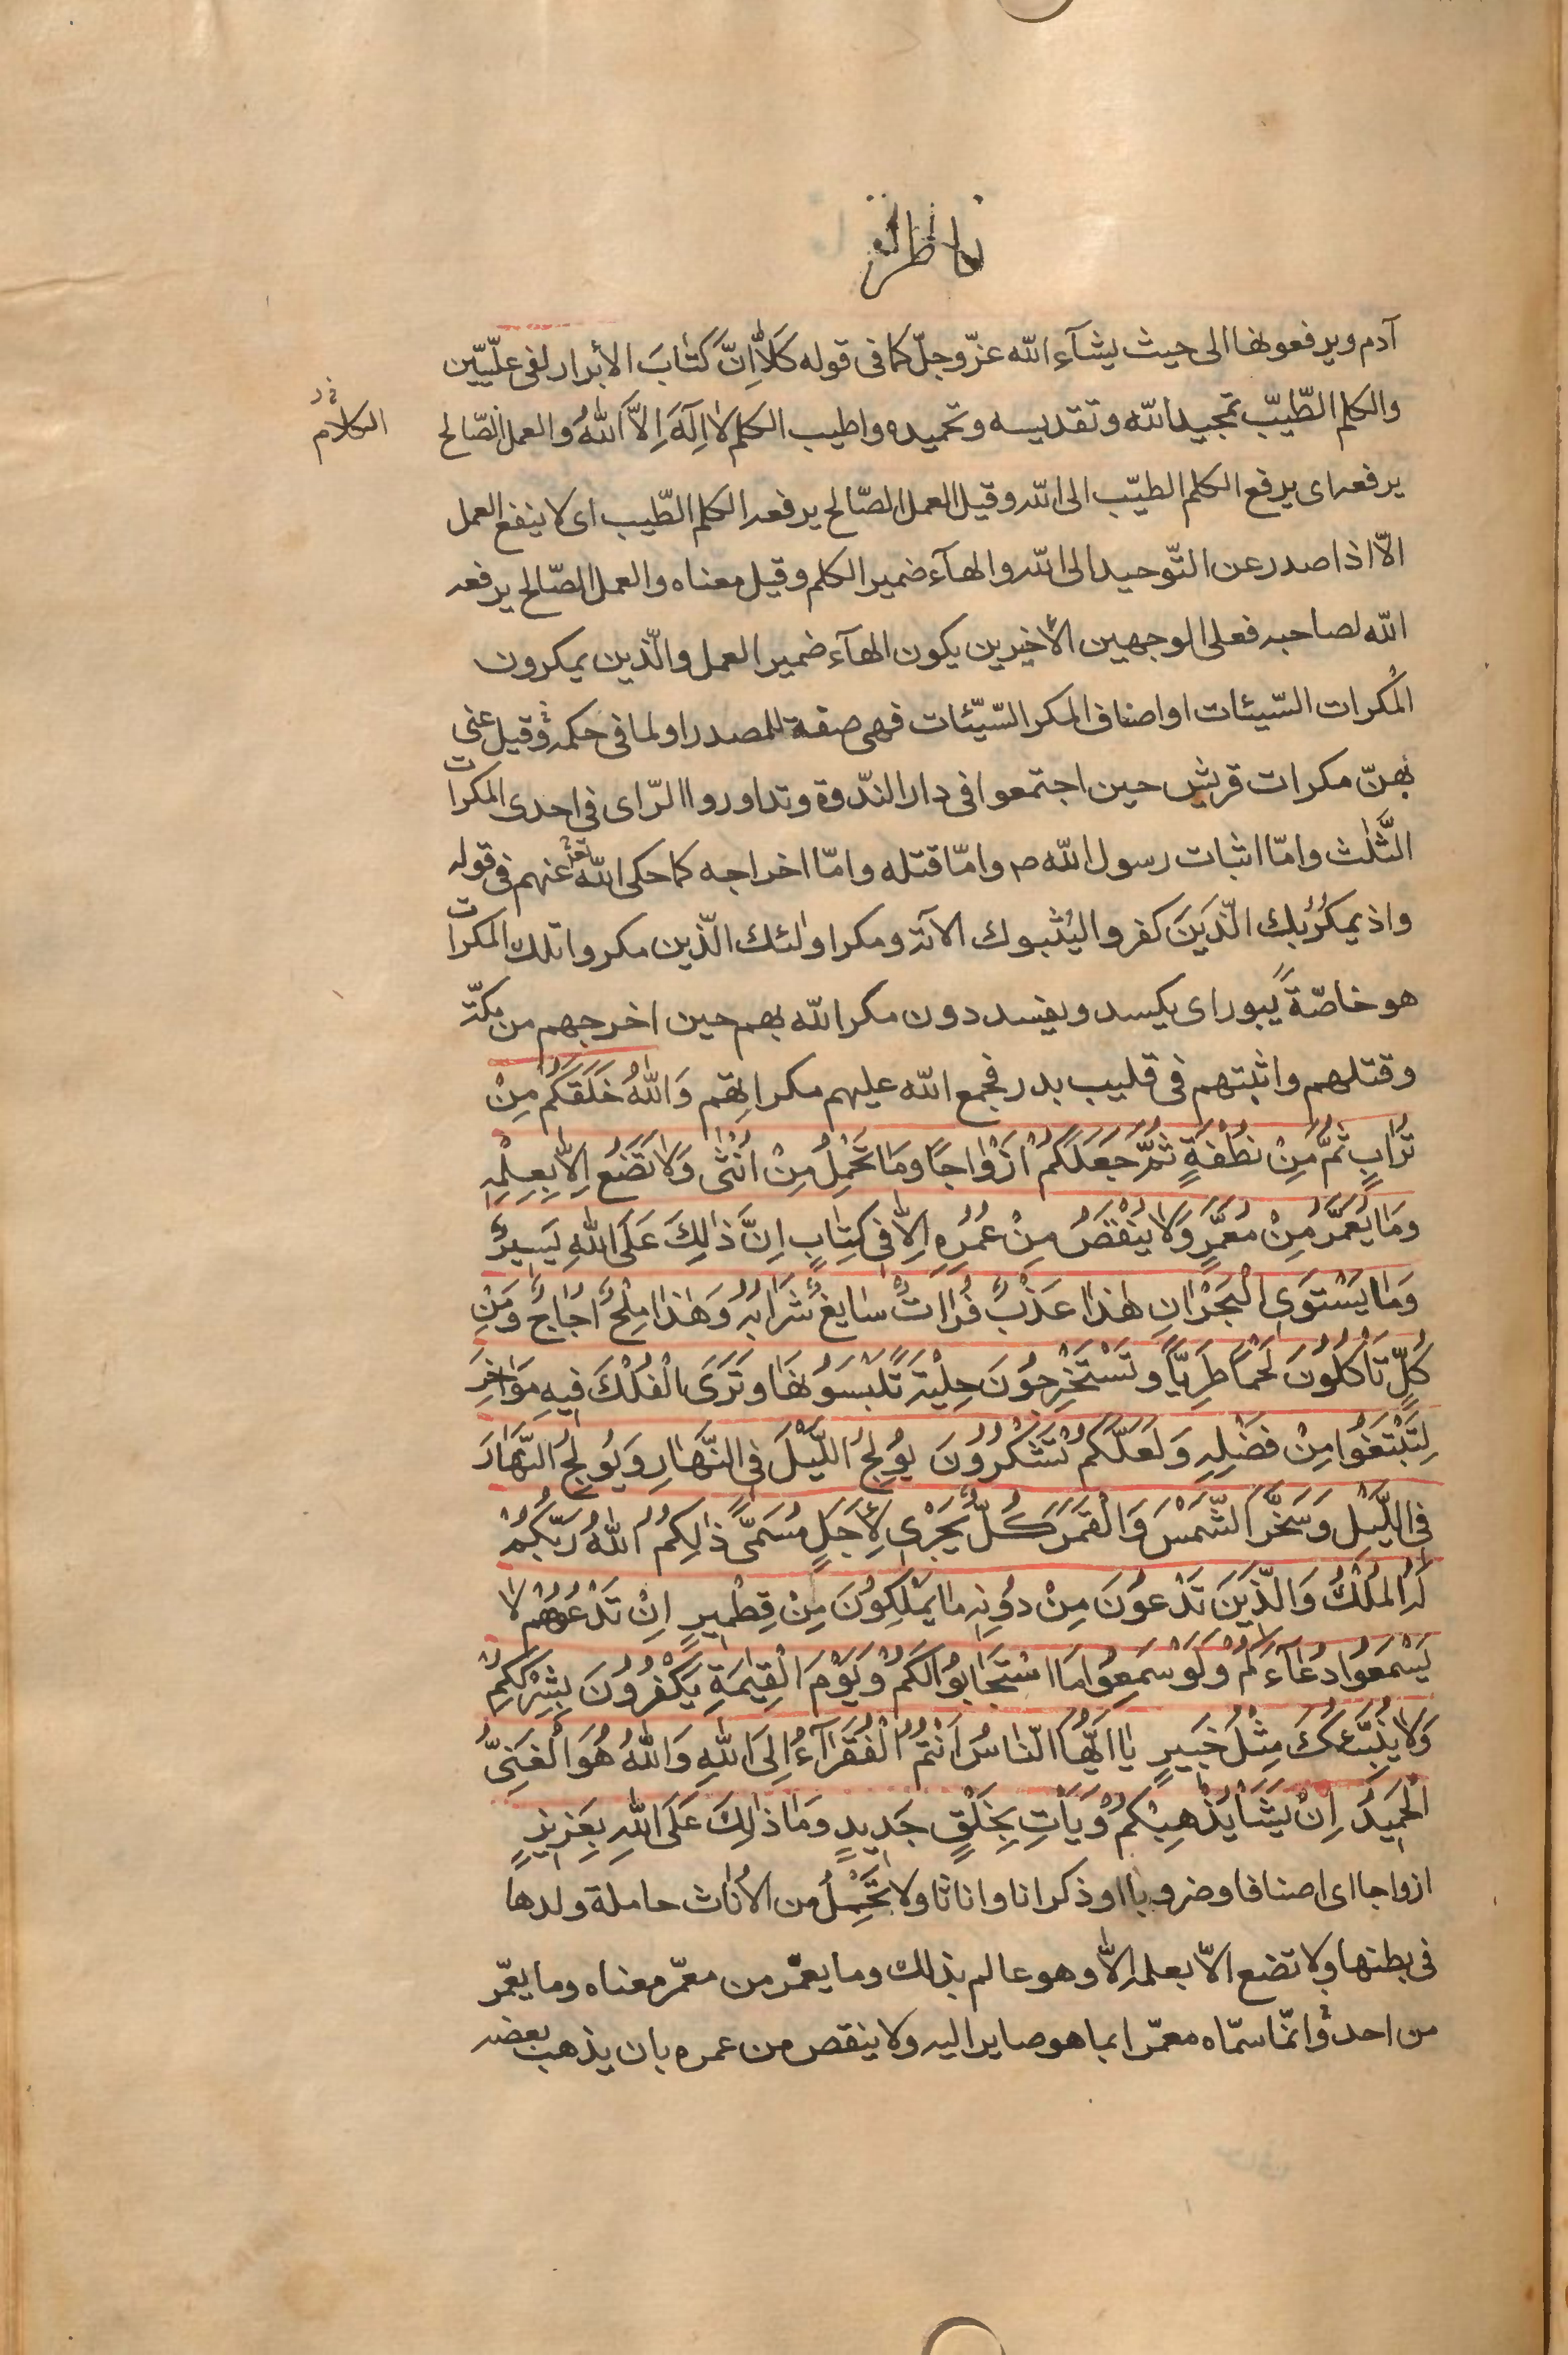 فاطر
آدم ويرفعونها الى حيث يشآء الله عزّ وجلّ كما فى قوله كَلَّا اِنَّ كِتٰابَ الأبرار لفى علّيّين
والكلم الطّيّب تمجيد الله وتقديسه وتحميده واطيب الكلم لا اِلٰهَ اِلَّا اللهُ والعمل الصّالح
الكلام
يرفعه اى يرفع الكلم الطيّب الى الله وقيل العمل الصّالح يرفعه الكلم الطّيب اى لا ينفع العمل
الّا اذا صدر عن التّوحيد الى الله والهآء ضمير الكلم وقيل معناه والعمل الصّالح يرفعه
الله لصاحبه فعلى الوجهين الأخيرين يكون الهآء ضمير العمل والّذين يمكرون
المُكرات السّيئات او اصناف المكر السّيّئات فهى صفة للمصدر او لما فى حكمه وقيل عنى
بهنّ مكرات قريش حين اجتمعوا فى دار النّدوة وتداوروا الرّاى فى احدى المكرات
الثَّلٰث وامّا اثبات رسول الله ص وامّا قتله وامّا اخراجه كما حكى الله عنهم فى قوله
واذ يمكُرُ بك الّذَينَ كفروا ليُثبوك الآية ومكر اولٰئك الّذين مكروا تلك المكرات
هو خاصّةً يبور اى يكسد ويفسد دون مكر الله بهم حين اخرجهم من مكّة
وقتلهم واثبتهم فى قليب بدر فجمع الله عليهم مكراتهم وَاللهُ خَلَقَكُمْ مِنْ
تُرٰابٍ ثُمَّ مِنْ نُطْفَةٍ ثُمَّ جَعَلَكُمْ اَزْوٰاجًا ومَا تَحْمِلُ مِنْ اُنْثٰى وَلٰا تَضَعُ اِلّٰا بِعِلْمِهِ
ومَا يُعَمَّرُ مِنْ مُعَمَّرٍ وَلٰا يُنْقَصُ مِنْ عُمُرِهِ اِلّٰا فى كِتٰابٍ اِنَّ ذٰلِكَ عَلَى اللهِ يَسِيرٌ
وَمٰا يَسْتَوِى الْبَحْرٰانِ هٰذٰا عَذْبٌ فُرٰاتٌ سٰايِغٌ شَرٰابُهُ وَهٰذٰا مِلْحٌ اُجٰاجٌ وَمِنْ
كُلٍّ تَاْكُلُونَ لَحْمًا طَرِيًّا وتَسْتَخْرِجُونَ حِلْيَةً تَلْبَسُونَهٰا وتَرَى الْفُلْكَ فيهِ مَوٰاخِرَ
لِتَبْتَغُوا مِنْ فَضْلِهِ وَلَعَلَّكُمْ تَشْكُرُونَ يُولِجُ اللَّيْلَ فى النَّهٰارِ وَيُولِجُ النَّهٰارَ
فى اللَّيْلِ وَسَخَّرَ الشَّمْسَ وَالْقَمَرَ كُلٌّ يَجْرى لِأَجَلٍ مُسَمًّى ذٰلِكُمُ اللهُ رَبُّكُمْ
لَهُ الْمُلْكُ وَالَّذينَ تَدْعُونَ مِنْ دُونِهِ مٰا يَمْلِكُونَ مِنْ قِطْميرٍ اِنْ تَدْعُوهُمْ لٰا
يَسْمَعُوا دُعٰآءَكُمْ وَلَوْ سَمِعُوا مَا اسْتَجٰابُوا لَكُمْ وَيَوْمَ الْقِيٰمَةِ يَكْفُرُونَ بِشِرْكِكُمْ
وَلٰا يُنَبِّئُكَ مِثْلُ خَبيرٍ يٰا اَيُّهَا النّٰاسُ اَنْتُمُ الْفُقَرٰآءُ اِلَى اللهِ وَاللهُ هُوَ الْغَنِىُّ
الْحَميدُ اِنْ يَشَاْ يُذْهِبْكُمْ وَيَاْتِ بِخَلْقٍ جَديدٍ وَمٰا ذٰلِكَ عَلَى اللهِ بِعَزيزٍ
ازواجا اى اصنافا وضروبا او ذكرانا واناثا ولا تَحْمِلُ من الأناث حاملة ولدها
فى بطنها ولا تضع الّا بعلمه الّا وهو عالم بذلك وما يعمّر من معمّر معناه وما يعمّر
من احد وانّما سمّاه معمّرا بما هو صاير اليه ولا ينقص من عمره بان يذهب بعضه